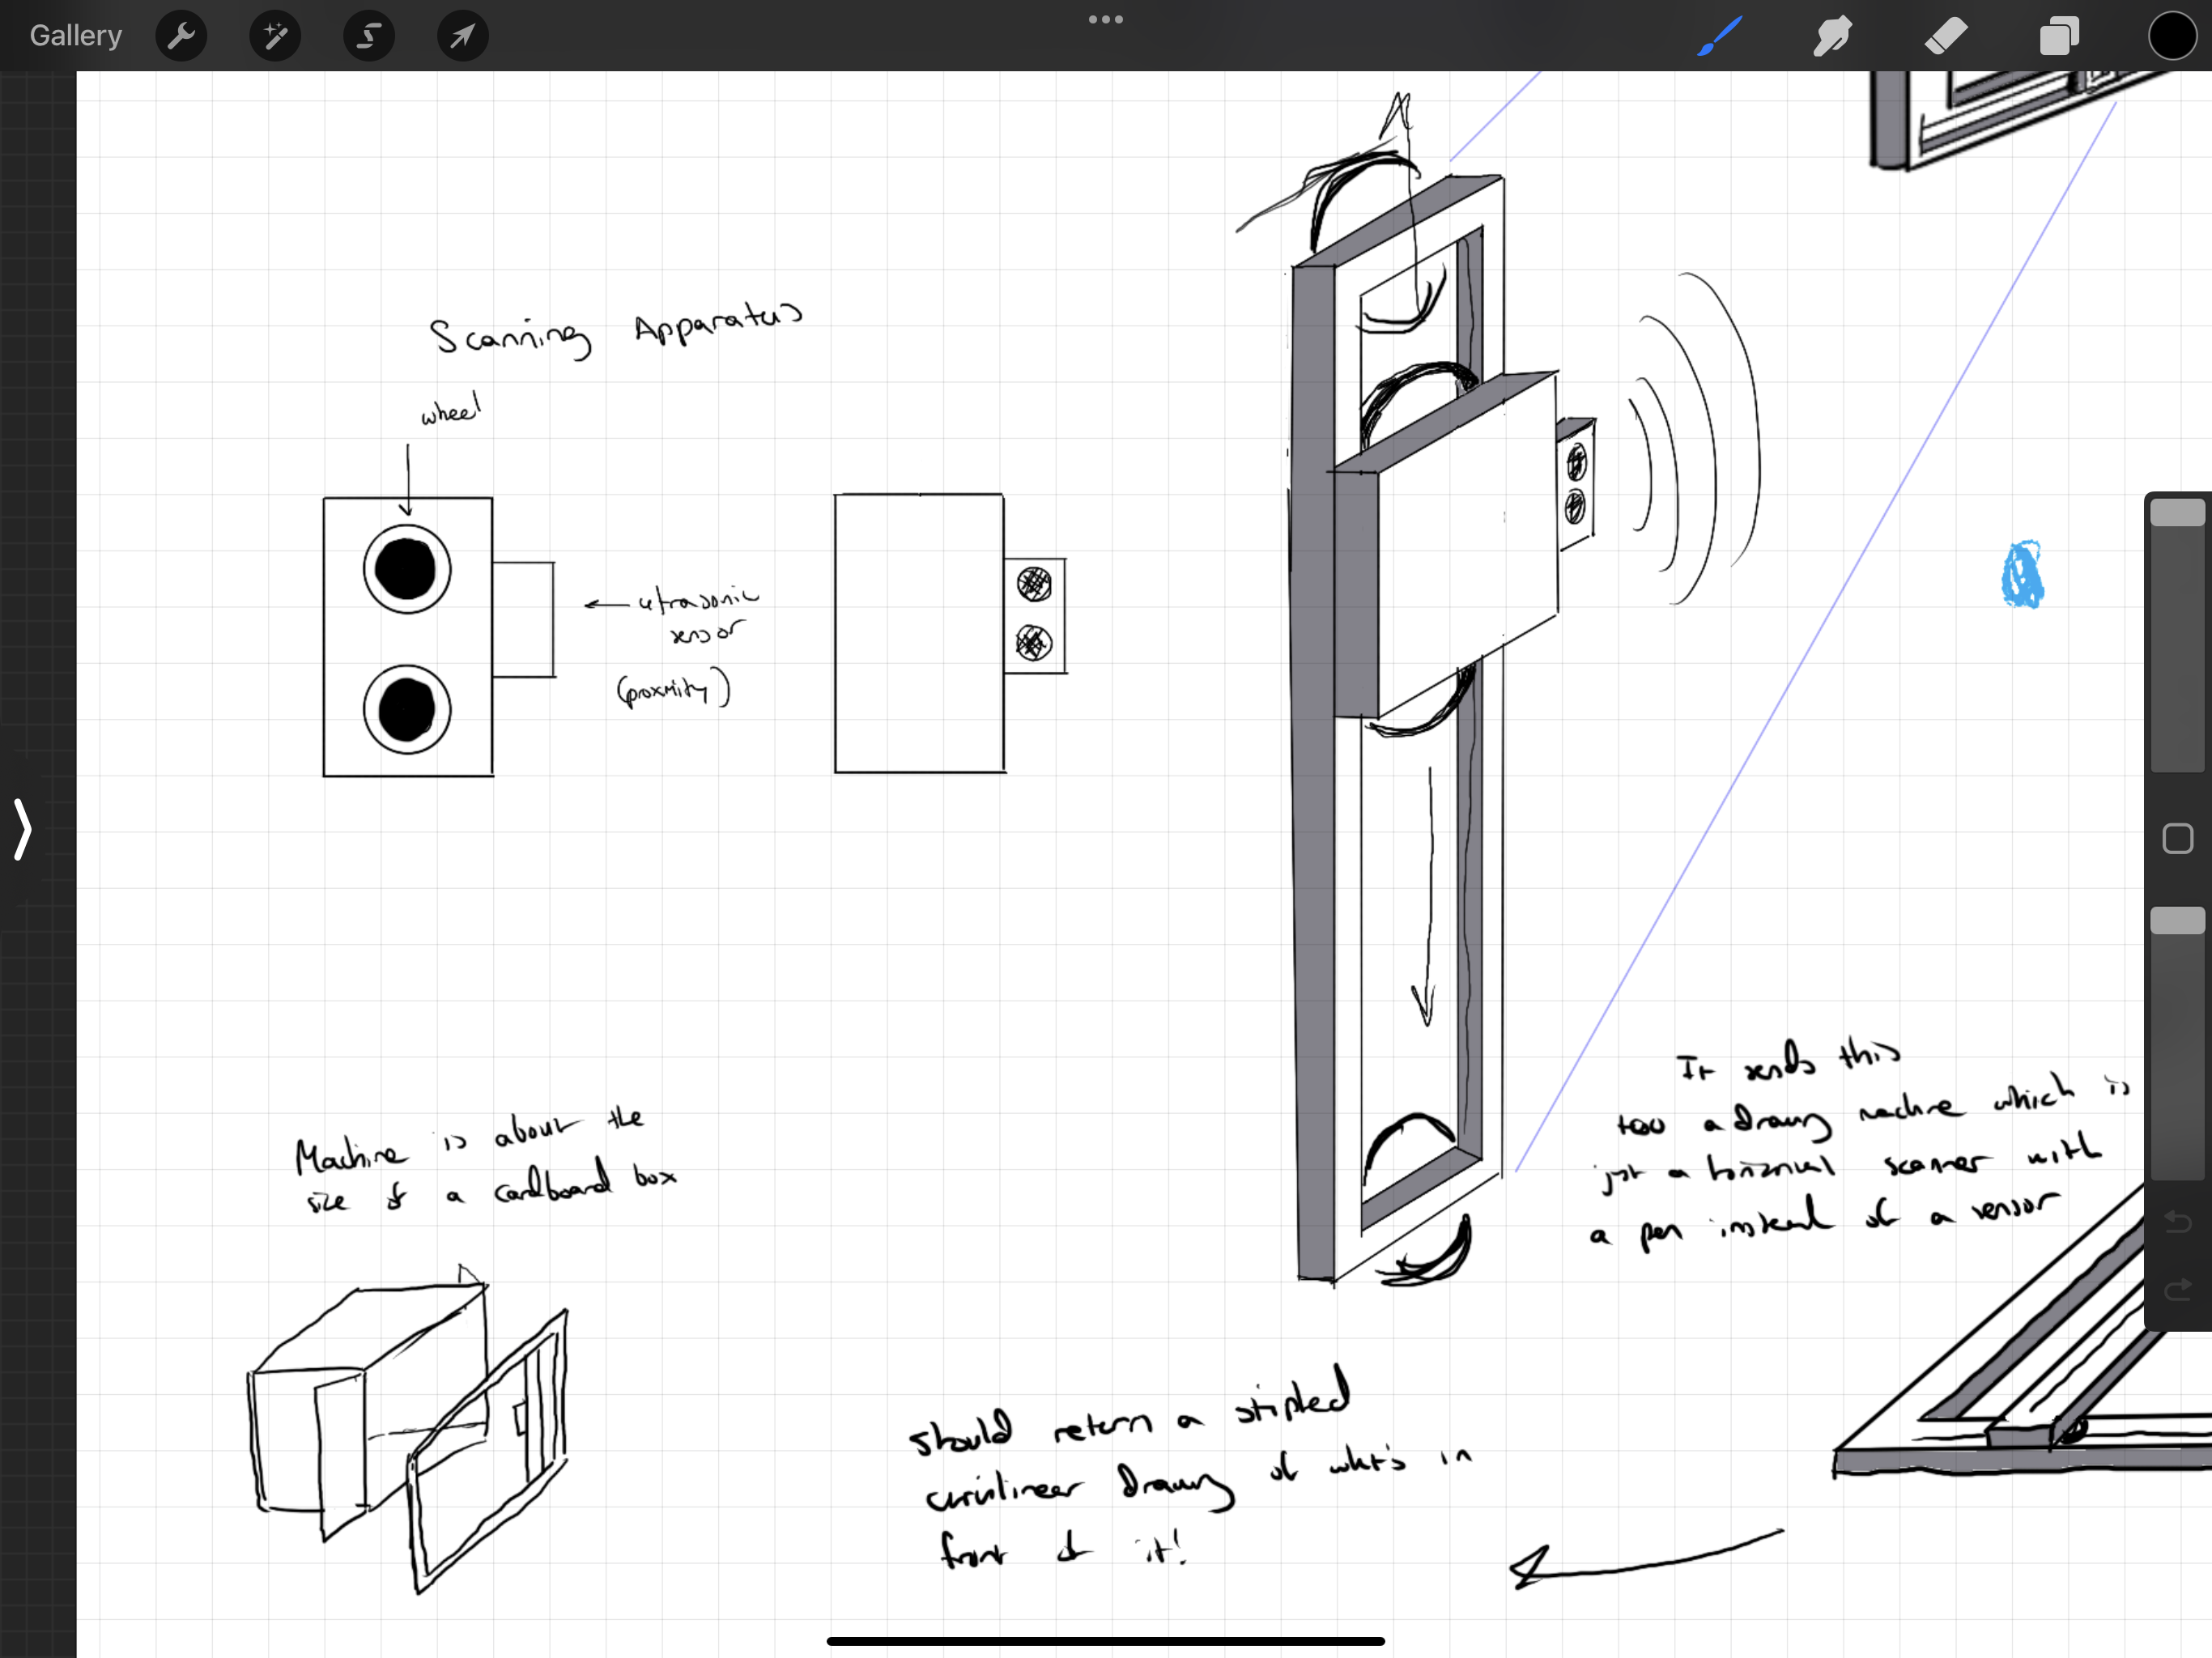 Gallery
Scanning Apparatus
wheel
utrasonic
sensor
(proxmity)
Machine is about the
size of a cardboard box
It sends this
too a drawing machine which is
just a horizontal scanner with
a pen instead of a sensor
should return a stipled
curvilinear drawing of what's in
front of it!